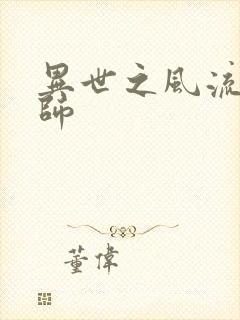 異世之風流
師
董偉